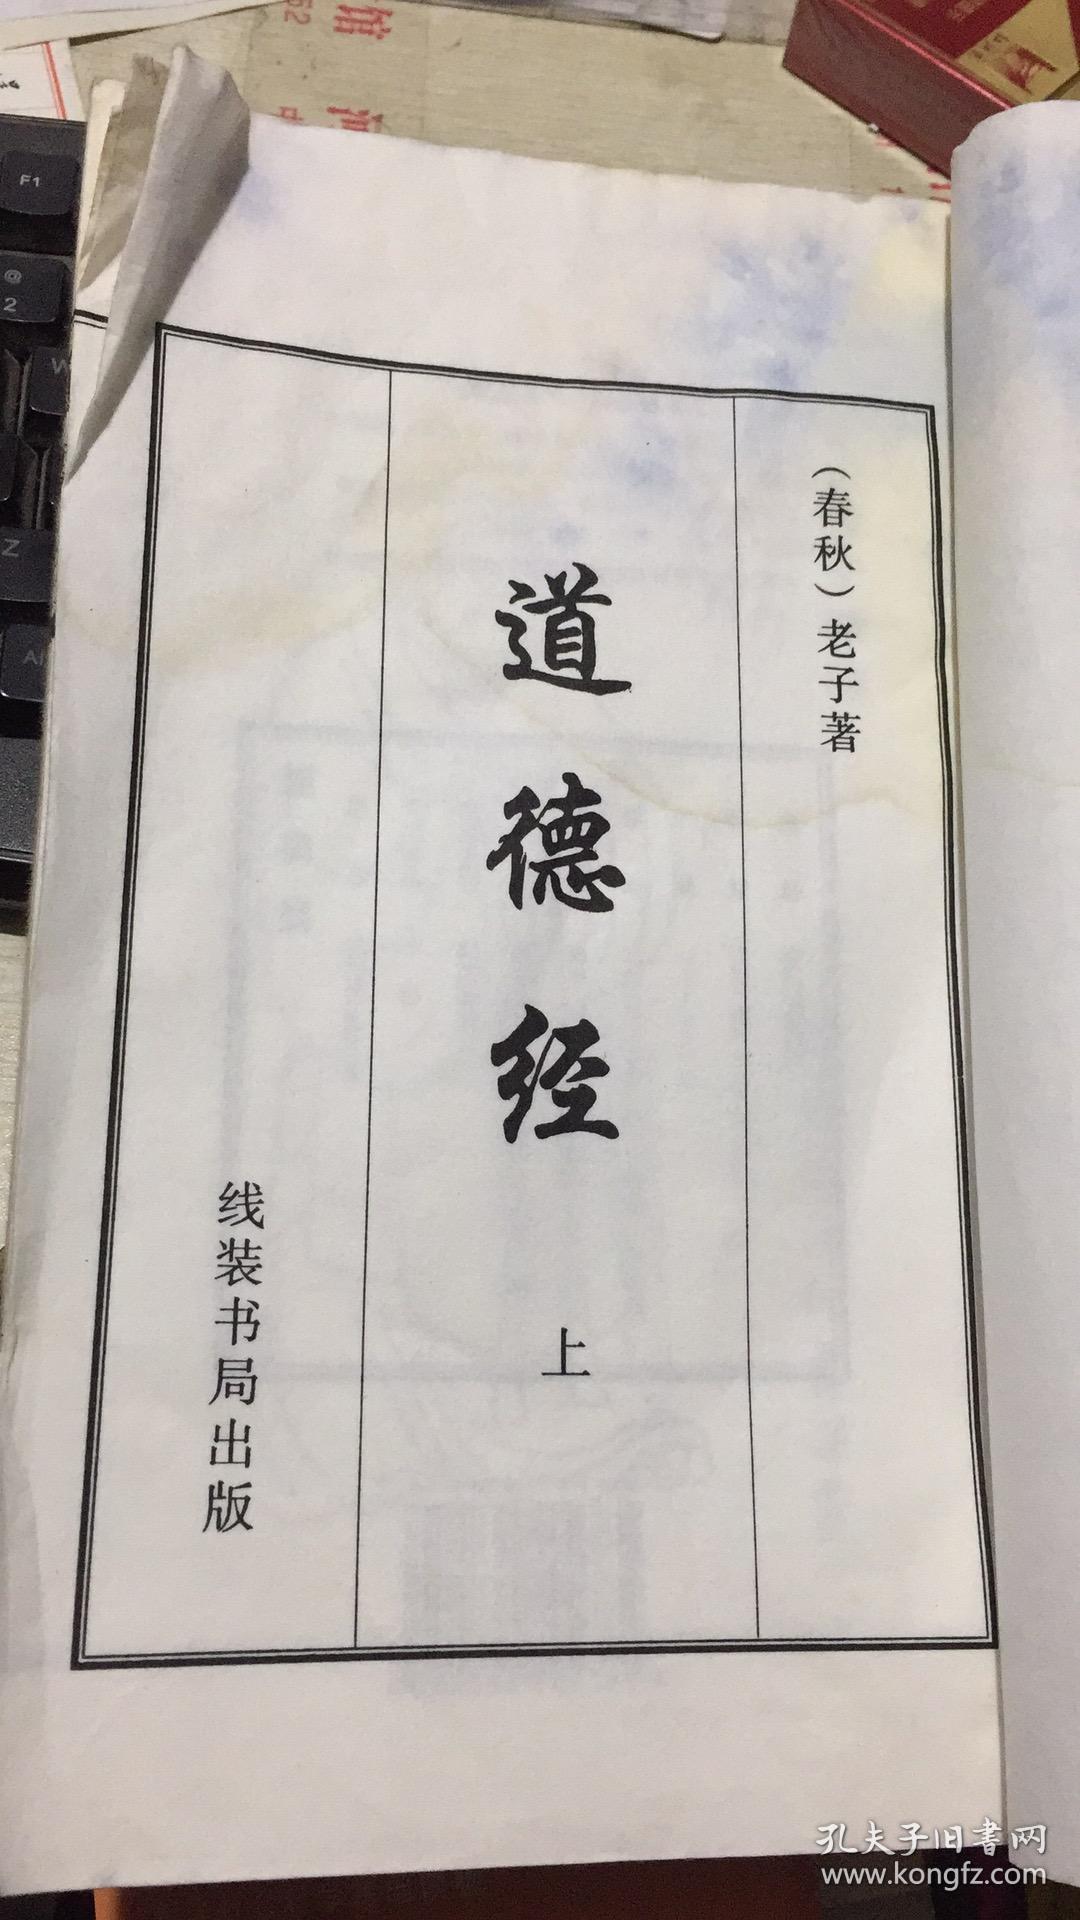 （春秋）老子著
道德经
上
线装书局出版
孔夫子旧書网
www.kongfz.com
F1
@
2
W
Z
52
馆